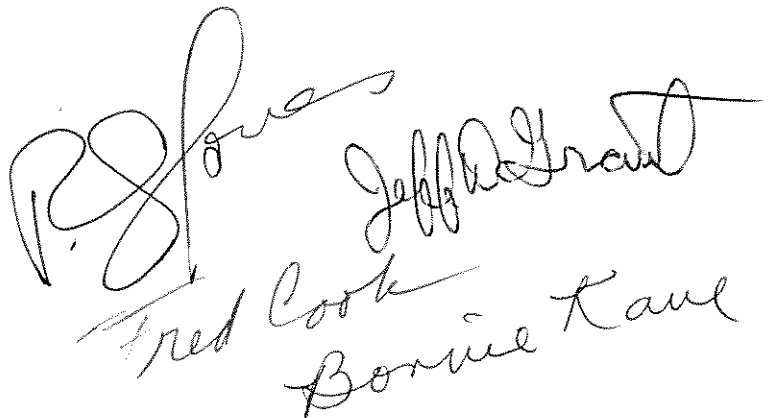 P. S. Jones
Jeff D. Grant
Fred Cook
Bonnie Kane